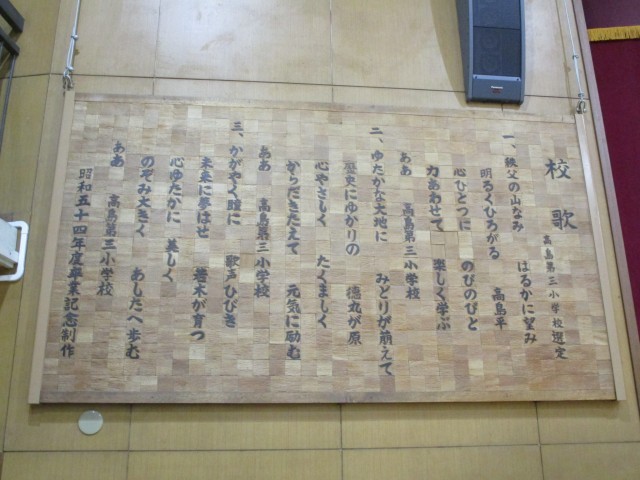 校歌
高島第三小学校選定
一、秩父の山なみ はるかに望み
明るくひろがる 高島平
心ひとつに のびのびと
力あわせて 楽しく学ぶ
ああ 高島第三小学校
二、ゆたかな大地に みどりが萌えて
歴史にゆかりの 徳丸が原
心やさしく たくましく
からだきたえて 元気に励む
ああ 高島第三小学校
三、かがやく瞳に 歌声ひびき
未来に夢はせ 若木が育つ
心ゆたかに 美しく
のぞみ大きく あしたへ歩む
ああ 高島第三小学校
昭和五十四年度卒業記念制作